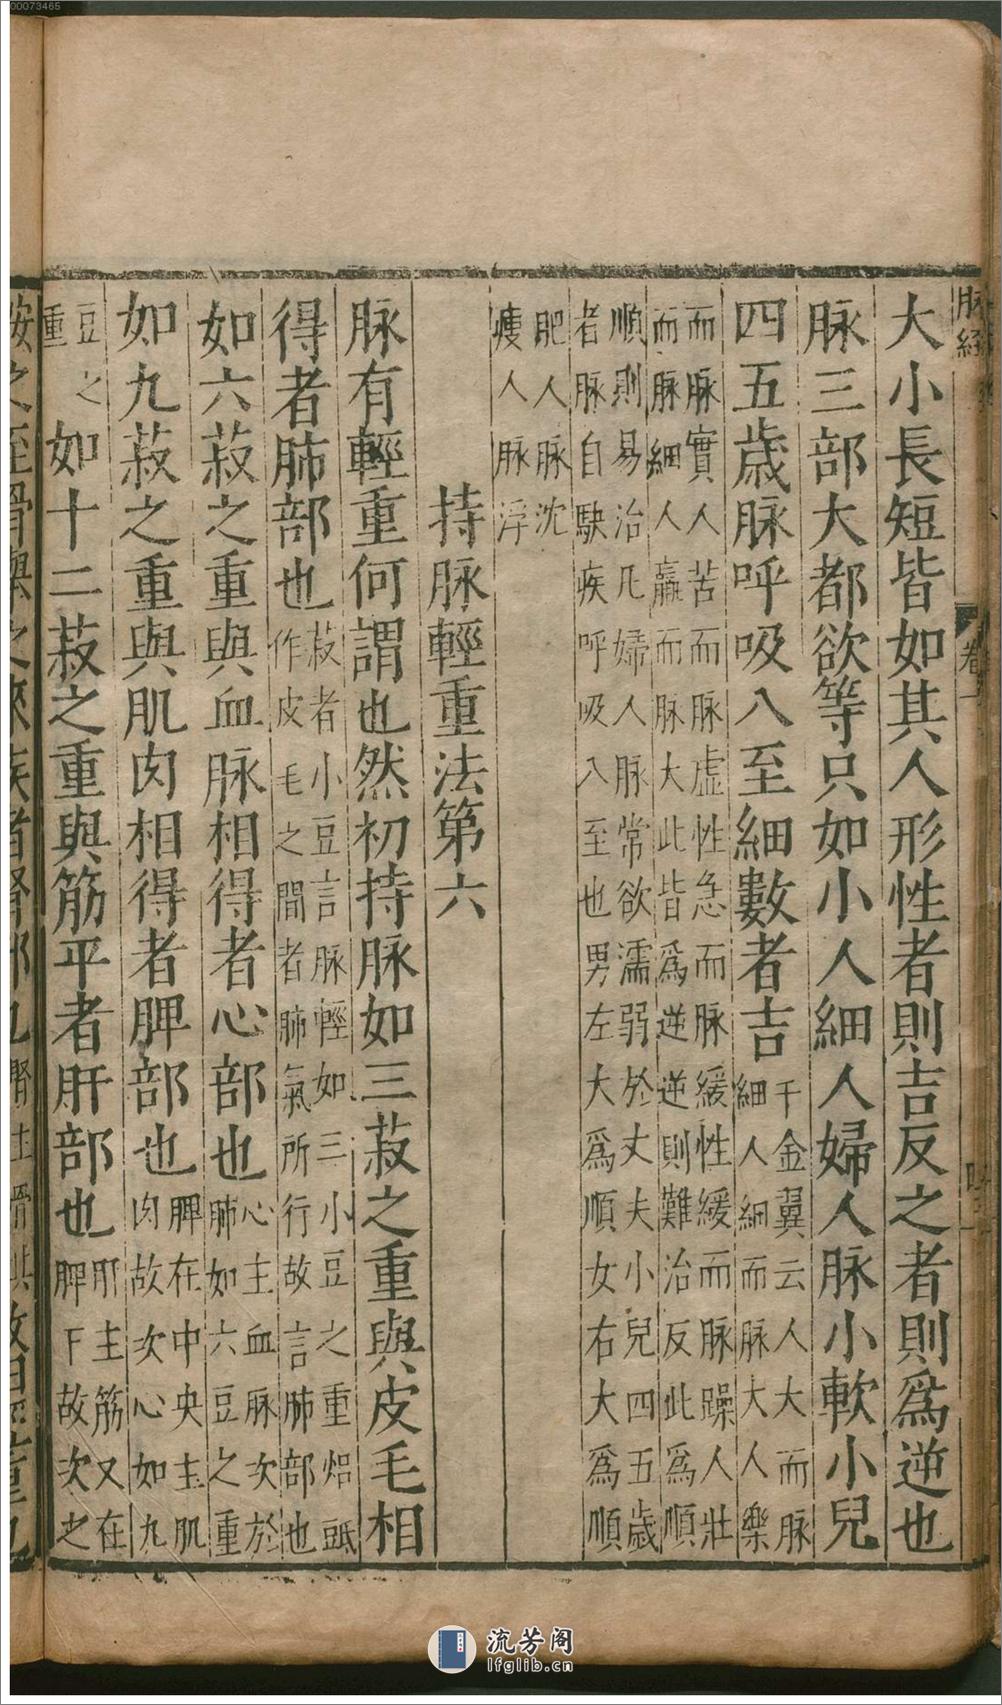 脉經
卷一
大小長短皆如其人形性者則吉反之者則爲逆也
脉三部大都欲等只如小人細人婦人脉小軟小兒
四五歲脉呼吸八至細數者吉千金翼云人大而脉細人細而脉大人樂
而脉實人苦而脉虛性急而脉緩性緩而脉躁人壯而脉細人羸而脉大此皆爲逆逆則難治反此爲順
順則易治凡婦人脉常欲濡弱於丈夫小兒四五歲者脉自駃疾呼吸八至也男左大爲順女右大爲順
肥人脉沈瘦人脉浮
持脉輕重法第六
脉有輕重何謂也然初持脉如三菽之重與皮毛相
得者肺部也菽者小豆言脉輕如三小豆之重作皮毛之間者肺氣所行故言肺部也
如六菽之重與血脉相得者心部也心主血脉次於肺如六豆之重
如九菽之重與肌肉相得者脾部也脾在中央主肌肉故次心如九
豆之重如十二菽之重與筋平者肝部也肝主筋又在脾下故次之
按之至骨舉之來疾者腎部也腎主骨其
流芳阁
lfglib.cn
00073465